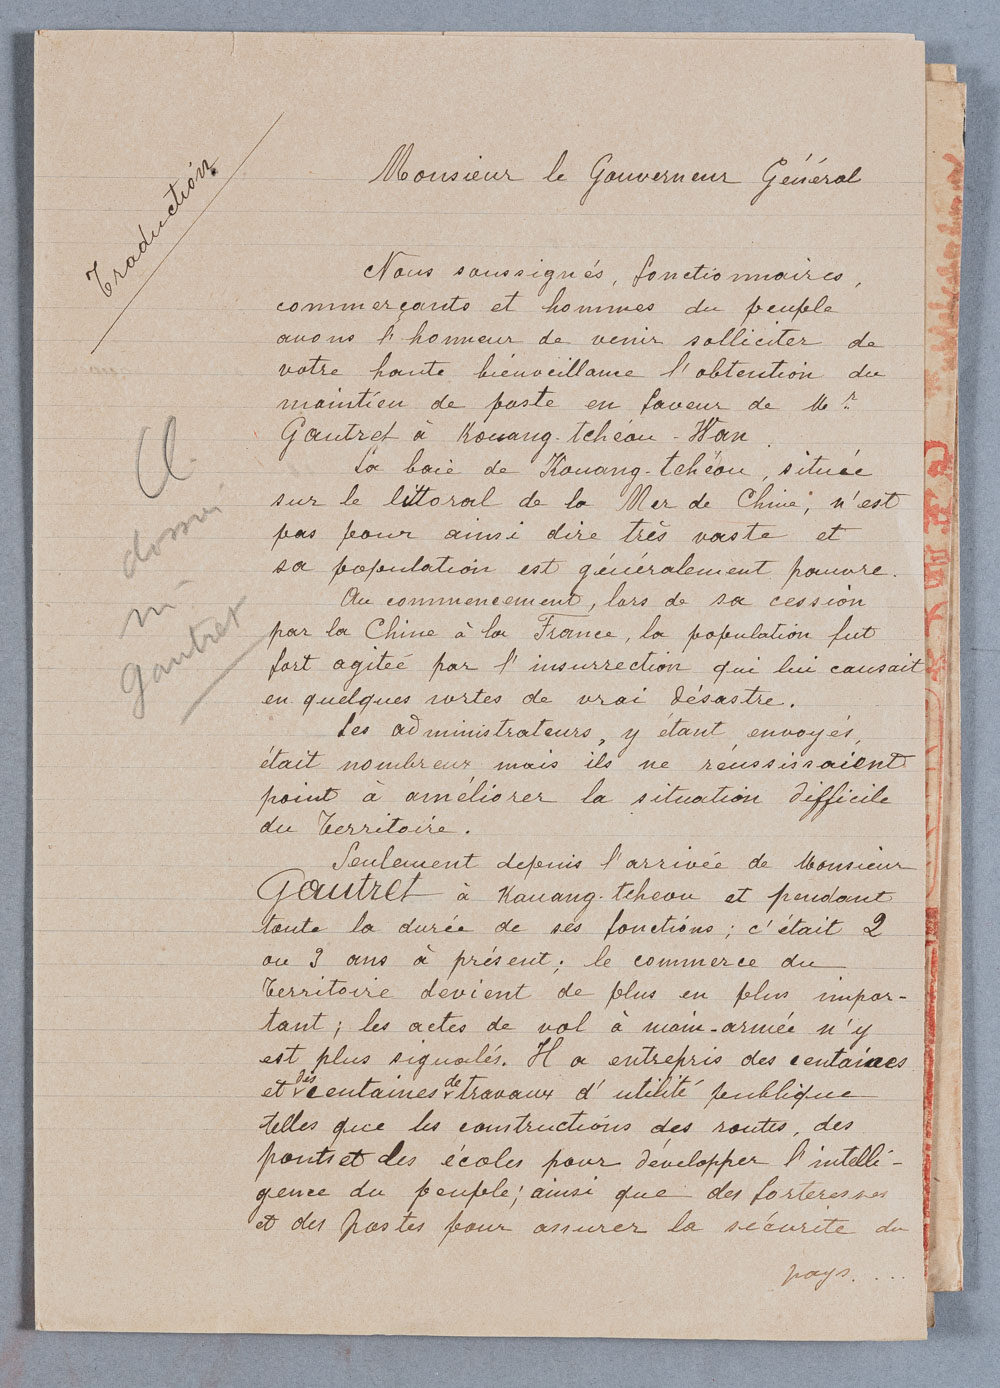 Traduction
Monsieur le Gouverneur Général
Nous soussignés, fonctionnaires,
commerçants et hommes du peuple
avons l'honneur de venir solliciter de
votre haute biénveillance l'obtention du
maintien de poste en faveur de Mr.
Gautret à Kouang-tchéou-Wan.
La baie de Kouang-tchéou, située
sur le littoral de la Mer de Chine, n'est
pas pour ainsi dire très vaste et
sa population est généralement pauvre.
Au commencement, lors de sa cession
par la Chine à la France, la population fut
fort agiteé par l'insurrection qui lui causait
en quelques sortes de vrai désastre.
Les administrateurs, y étant envoyés,
était nombreux mais ils ne réussissaient
point à améliorer la situation difficile
du Territoire.
Seulement depuis l'arrivée de Monsieur
Gautret à Kouang-tcheou et pendant
toute la durée de ses fonctions; c'était 2
ou 3 ans à présent; le commerce du
Territoire devient de plus en plus impor-
tant; les actes de vol à main-armée n'y
est plus signalés. Il a entrepris des centaines
et des centaines de travaux d'utilité publique
telles que les constructions des routes, des
ponts et des écoles pour développer l'intelli-
gence du peuple; ainsi que des forteresses
et des postes pour assurer la sécurité du
pays....
Cl.
dossier
Mr
Gautret